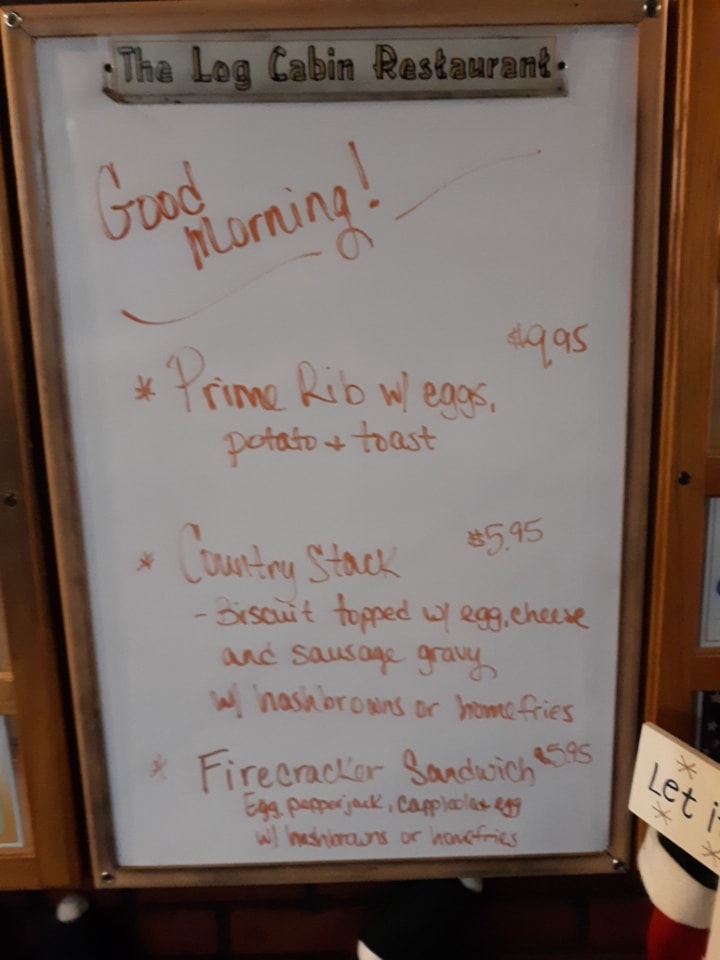 The Log Cabin Restaurant
Good
Morning!
$9.95
* Prime Rib w/ eggs,
potato + toast
* Country Stack $5.95
- Biscuit topped w/ egg, cheese
and sausage gravy
w/ hashbrowns or homefries
* Firecracker Sandwich $5.95
Egg, pepperjack, egg
w/ hashbrowns or homefries
Let i